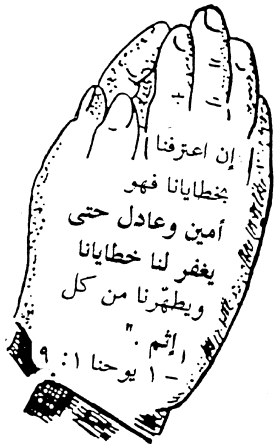 إن اعترفنا
بخطايانا فهو
أمين وعادل حتى
يغفر لنا خطايانا
ويطهّرنا من كل
إثم ."
– ١ يوحنا ١ : ٩